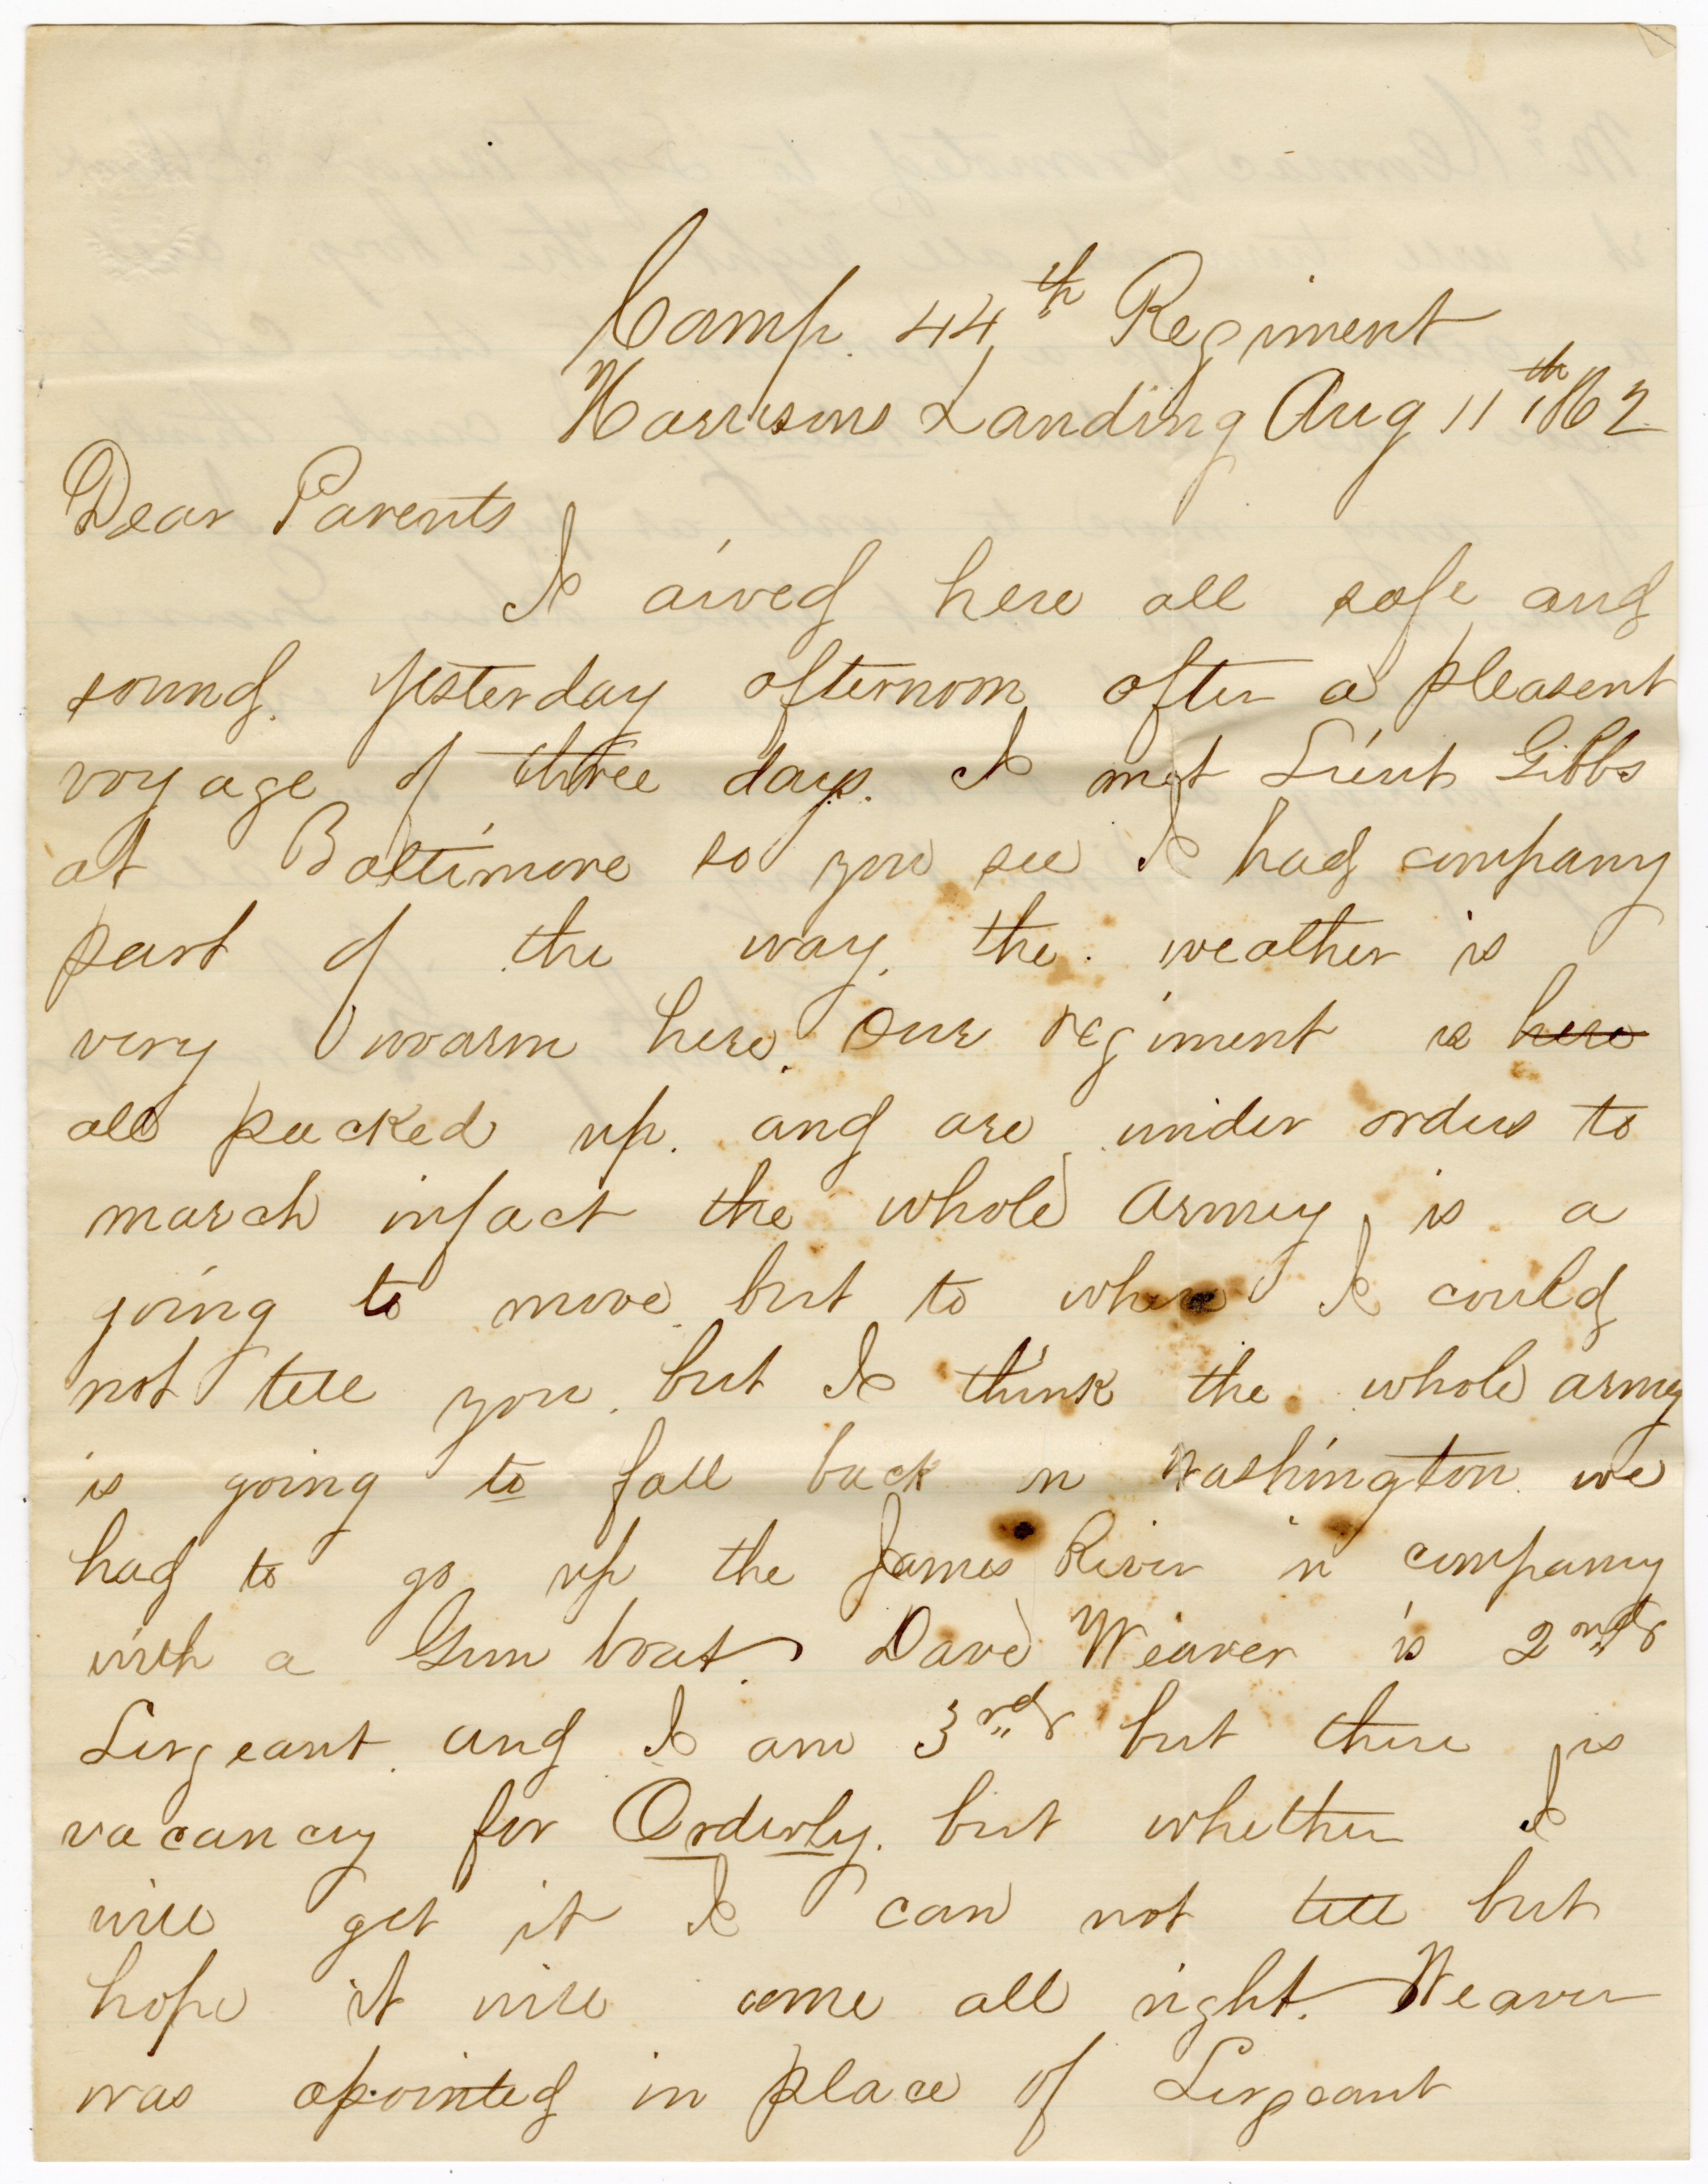 Camp. 44th Regiment
Harrisons Landing Aug 11th 1862
Dear Parents
I arived here all safe and
sound. yesterday afternoon after a pleasent
voyage of three days. I met Lieut Gibbs
at Baltimore so you see I had company
part of the way. the weather is
very warm here. Our regiment is here
all packed up. and are under orders to
march infact the whole armey is a
going to move. but to where I could
not tell you. but I think the whole armey
is going to fall back on Washington. we
had to go up the James River in company
with a Gun boat. Dave Weaver is 2nd
Sergeant. and I am 3rd but there is
vacancy for Orderly. but whether I
will get it I can not tell but
hope it will come all right. Weaver
was apointed in place of Sergeant